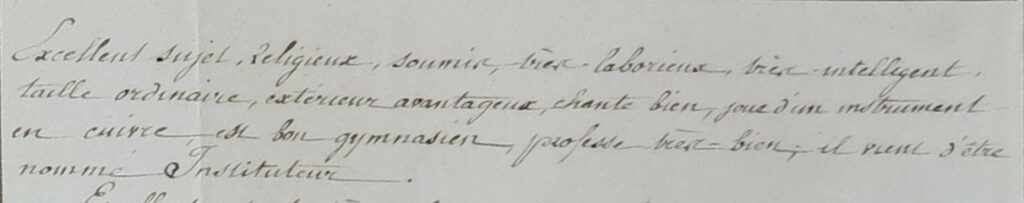 Excellent sujet, Religieux, soumis, très-laborieux, très-intelligent,
taille ordinaire, extérieur avantageux, chante bien, joue d'un instrument
en cuivre, est bon gymnasien, professe très-bien; il vient d'être
nommé Instituteur.